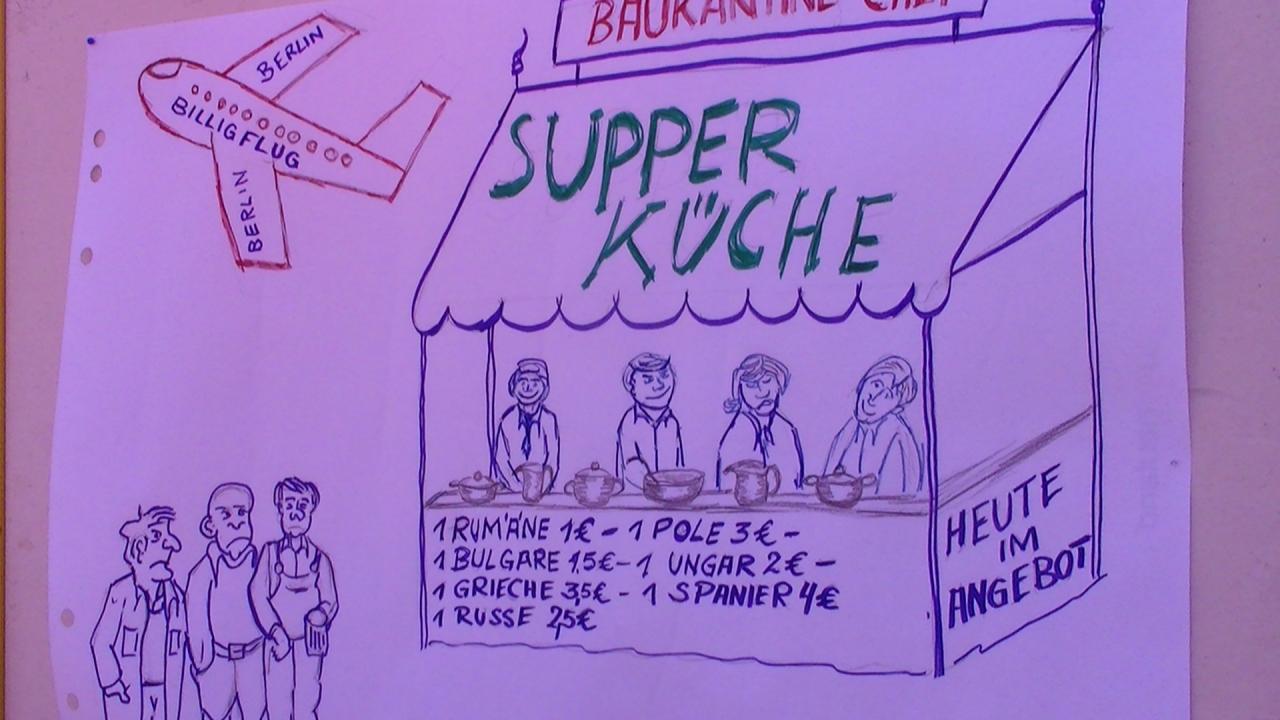 BAUKANTINE
BERLIN
BILLIGFLUG
BERLIN
SUPPER
KÜCHE
1 RUMÄNE 1€ - 1 POLE 3€ -
1 BULGARE 1,5€ - 1 UNGAR 2€ -
1 GRIECHE 3,5€ - 1 SPANIER 4€
1 RUSSE 2,5€
HEUTE
IM
ANGEBOT